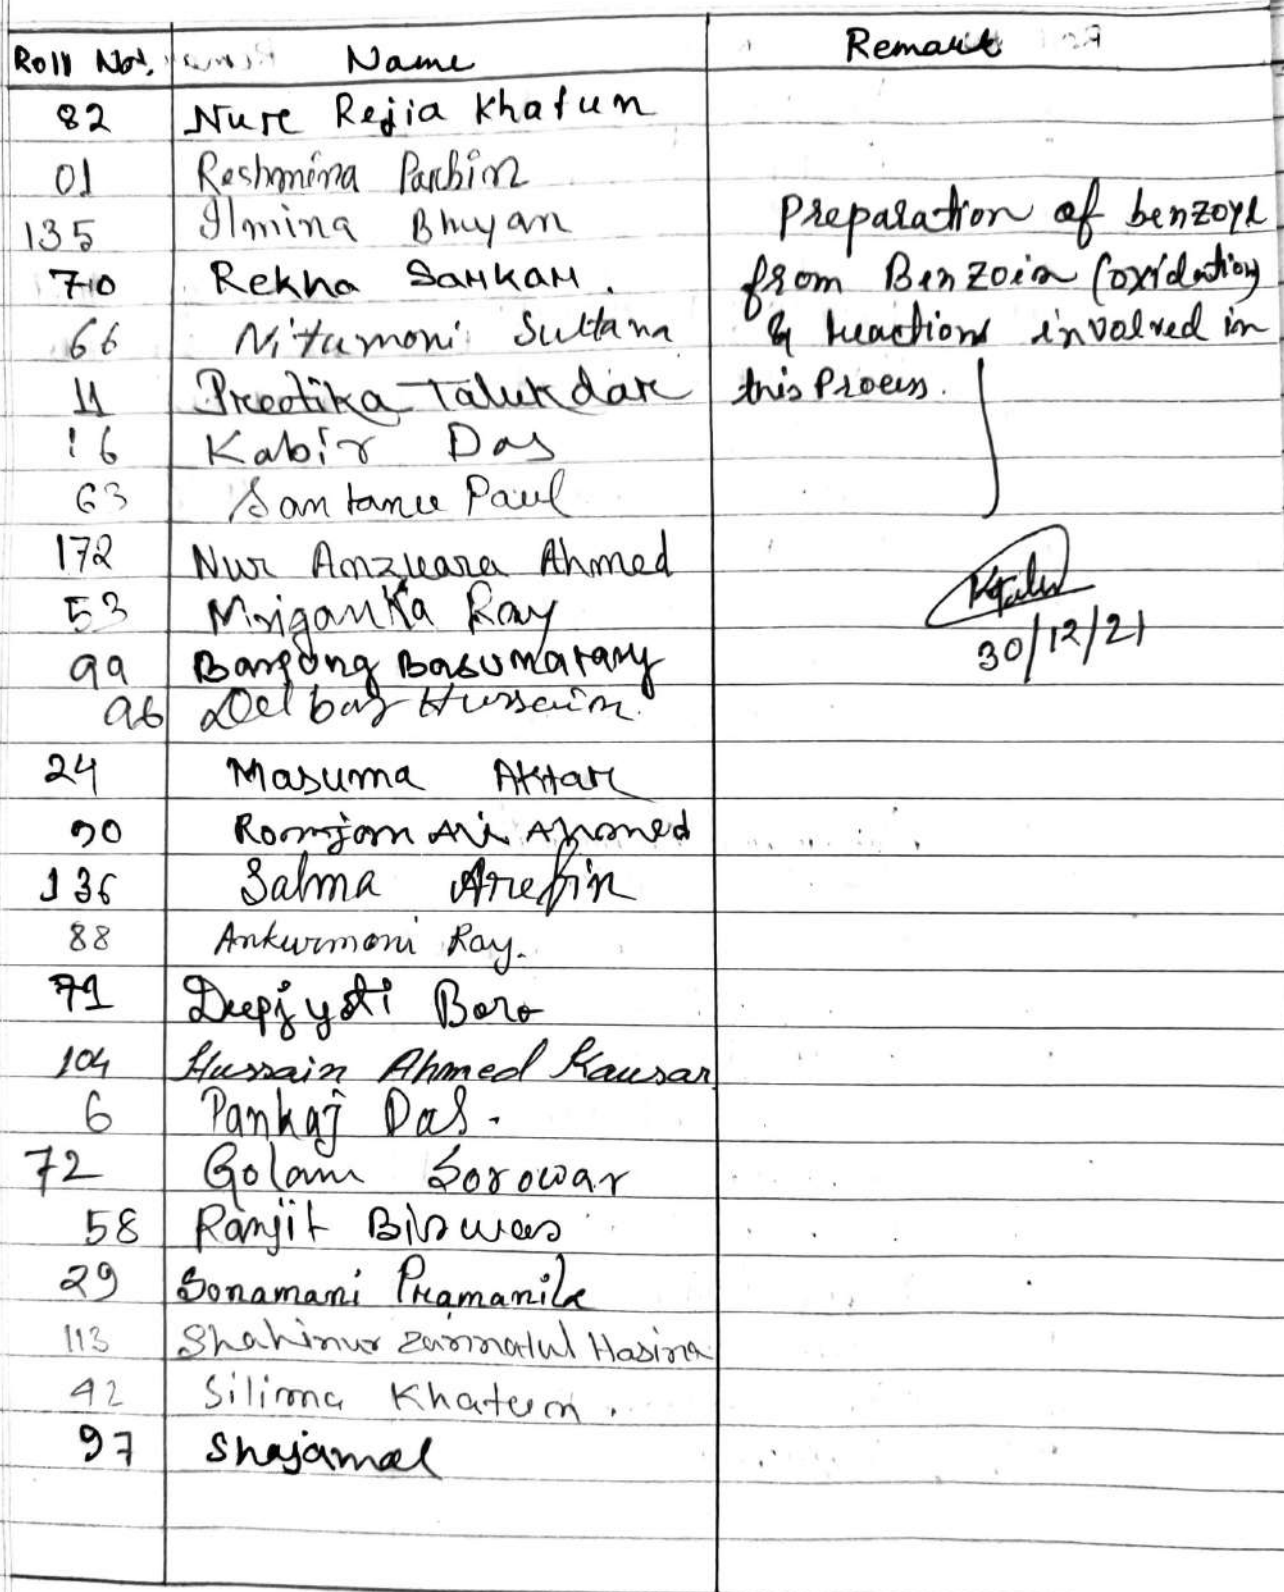 Roll No. Name Remark
82 Nure Rejia Khatun
01 Reshmina Parbin
135 Ilmina Bhuyan Preparation of benzoyl
70 Rekha Sarkar. from Benzoin (oxidation)
66 Nitumoni Sultana & reactions involved in
11 Preetika Talukdar this Process.
16 Kabir Das
63 Santanu Paul
172 Nur Amzueara Ahmed
53 Mriganka Ray
99 Bargong Basumatary 30/12/21
96 Delbar Hussain
24 Masuma Aktar
90 Romjan Ali Ahmed
136 Salma Arefin
88 Ankurmoni Ray.
71 Deepjyoti Boro
104 Hussain Ahmed Kausar
6 Pankaj Das.
72 Golam Sorowar
58 Ranjit Biswas
29 Sonamani Pramanik
113 Shahinur Zannatul Hasina
42 Silima Khatun.
97 Shajamal